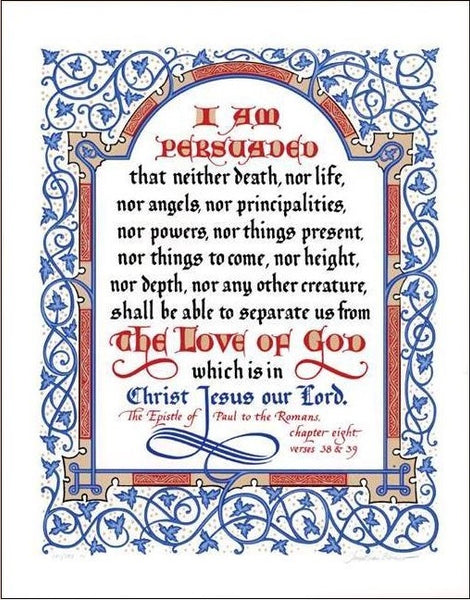 I AM
PERSUADED
that neither death, nor life,
nor angels, nor principalities,
nor powers, nor things present,
nor things to come, nor height,
nor depth, nor any other creature,
shall be able to separate us from
the Love of God
which is in
Christ Jesus our Lord.
The Epistle of Paul to the Romans,
chapter eight,
verses 38 & 39